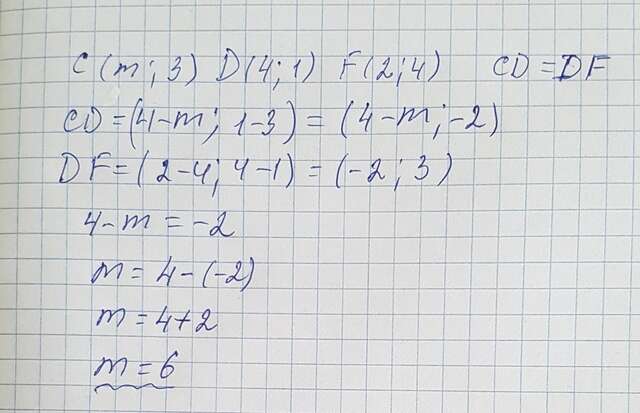 C (m; 3) D(4; 1) F(2; 4) CD = DF
CD = (4-m; 1-3) = (4-m; -2)
DF = (2-4; 4-1) = (-2; 3)
4-m = -2
m = 4-(-2)
m = 4+2
m = 6